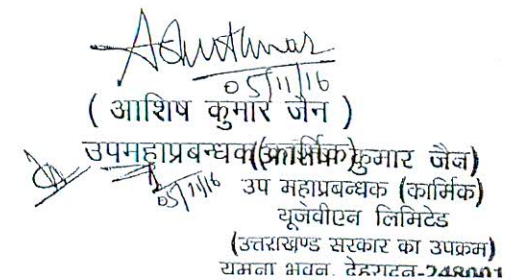 05/11/16
( आशिष कुमार जैन )
उपमहाप्रबन्धक(कार्मिक)
(आशिष कुमार जैन)
05/11/16
उप महाप्रबन्धक (कार्मिक)
यूजेवीएन लिमिटेड
(उत्तराखण्ड सरकार का उपक्रम)
यमुना भवन, देहरादून-248001